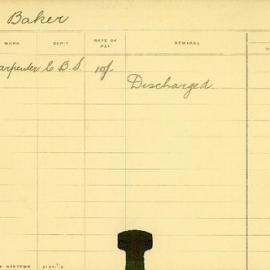 Baker
WORK DEP'T RATE OF PAY REMARKS
arpenter C. B. S.
Discharged.